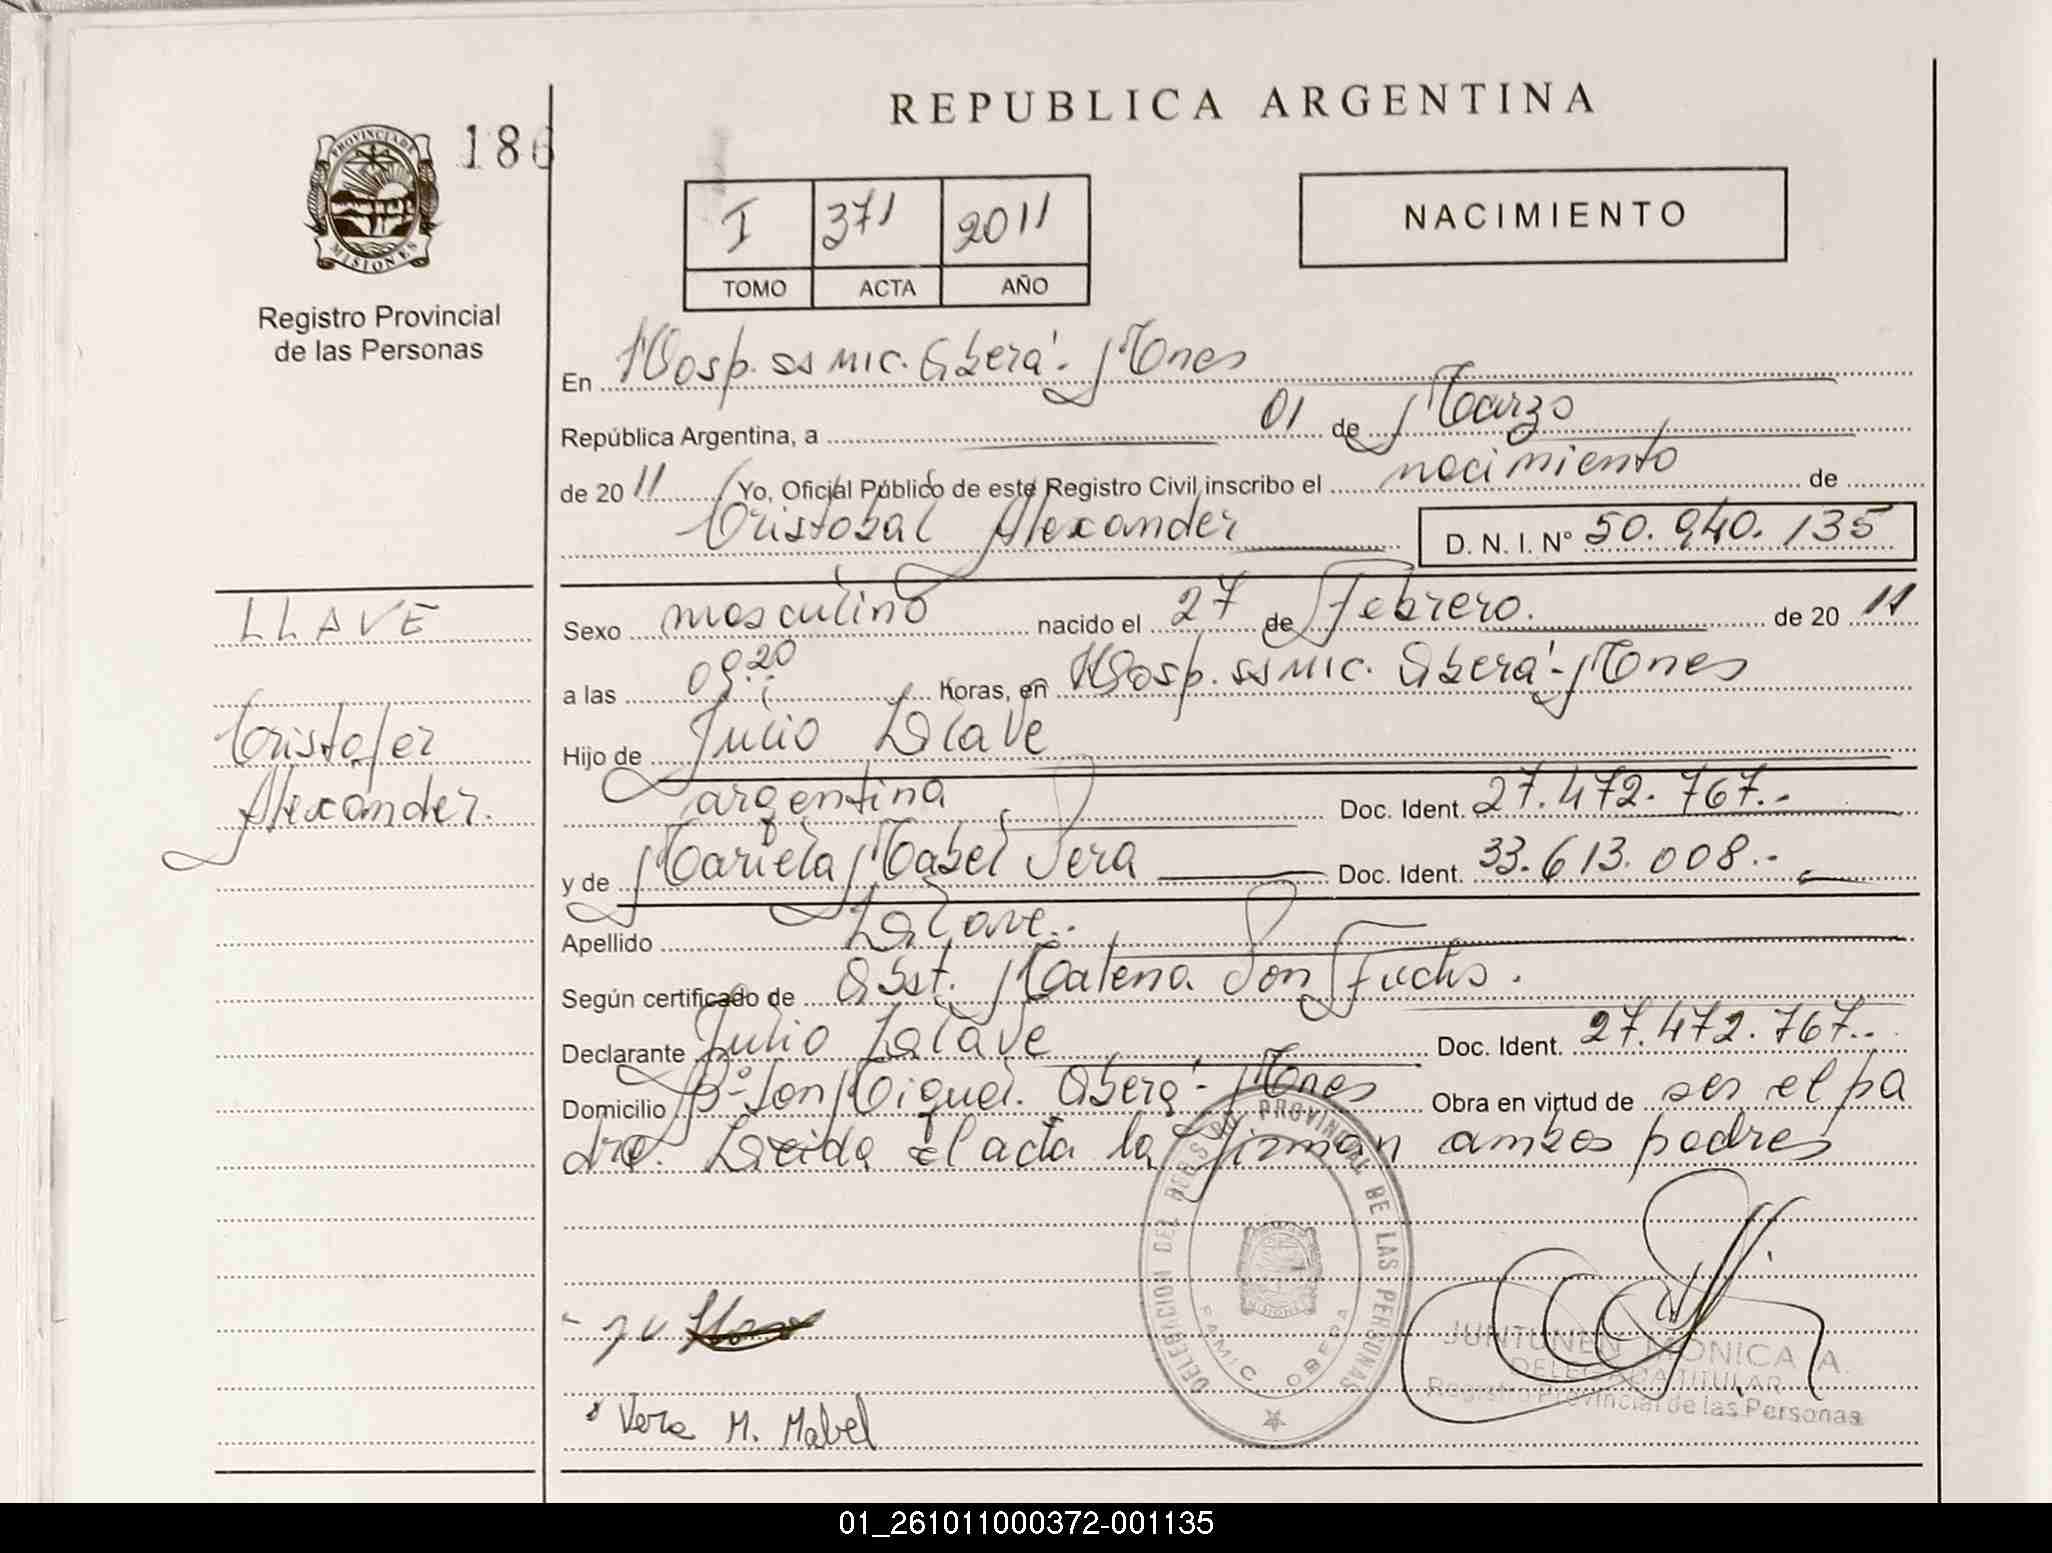 REPUBLICA ARGENTINA
PROVINCIA DE
MISIONES
186
Registro Provincial
de las Personas
I 371 2011
TOMO ACTA AÑO
NACIMIENTO
En Hosp. SS MIC. Oberá - Mnes
República Argentina, a 01 de Marzo
de 20 11 Yo, Oficial Público de este Registro Civil inscribo el nacimiento de
Cristobal Alexander D. N. I. Nº 50.940.135
LLAVE
Cristofer
Alexander.
Sexo masculino nacido el 27 de Febrero. de 20 11
a las 09:20 horas, en Hosp. SS MIC. Oberá - Mnes
Hijo de Julio Llave
argentina Doc. Ident. 27.472.767.-
y de Mariela Mabel Vera Doc. Ident. 33.613.008.-
Apellido Llave.
Según certificado de Obst. Malena Von Fuchs.
Declarante Julio Llave Doc. Ident. 27.472.767..
Domicilio Bº San Miguel. Oberá - Mnes Obra en virtud de ser el pa
dre. Leida el acta la firman ambos padres
DELEGACION DEL REGISTRO PROVINCIAL DE LAS PERSONAS
OBERA
JUNTUNEN MONICA A.
DELEGADA TITULAR
Registro Provincial de las Personas
Vera M. Mabel
01_261011000372-001135